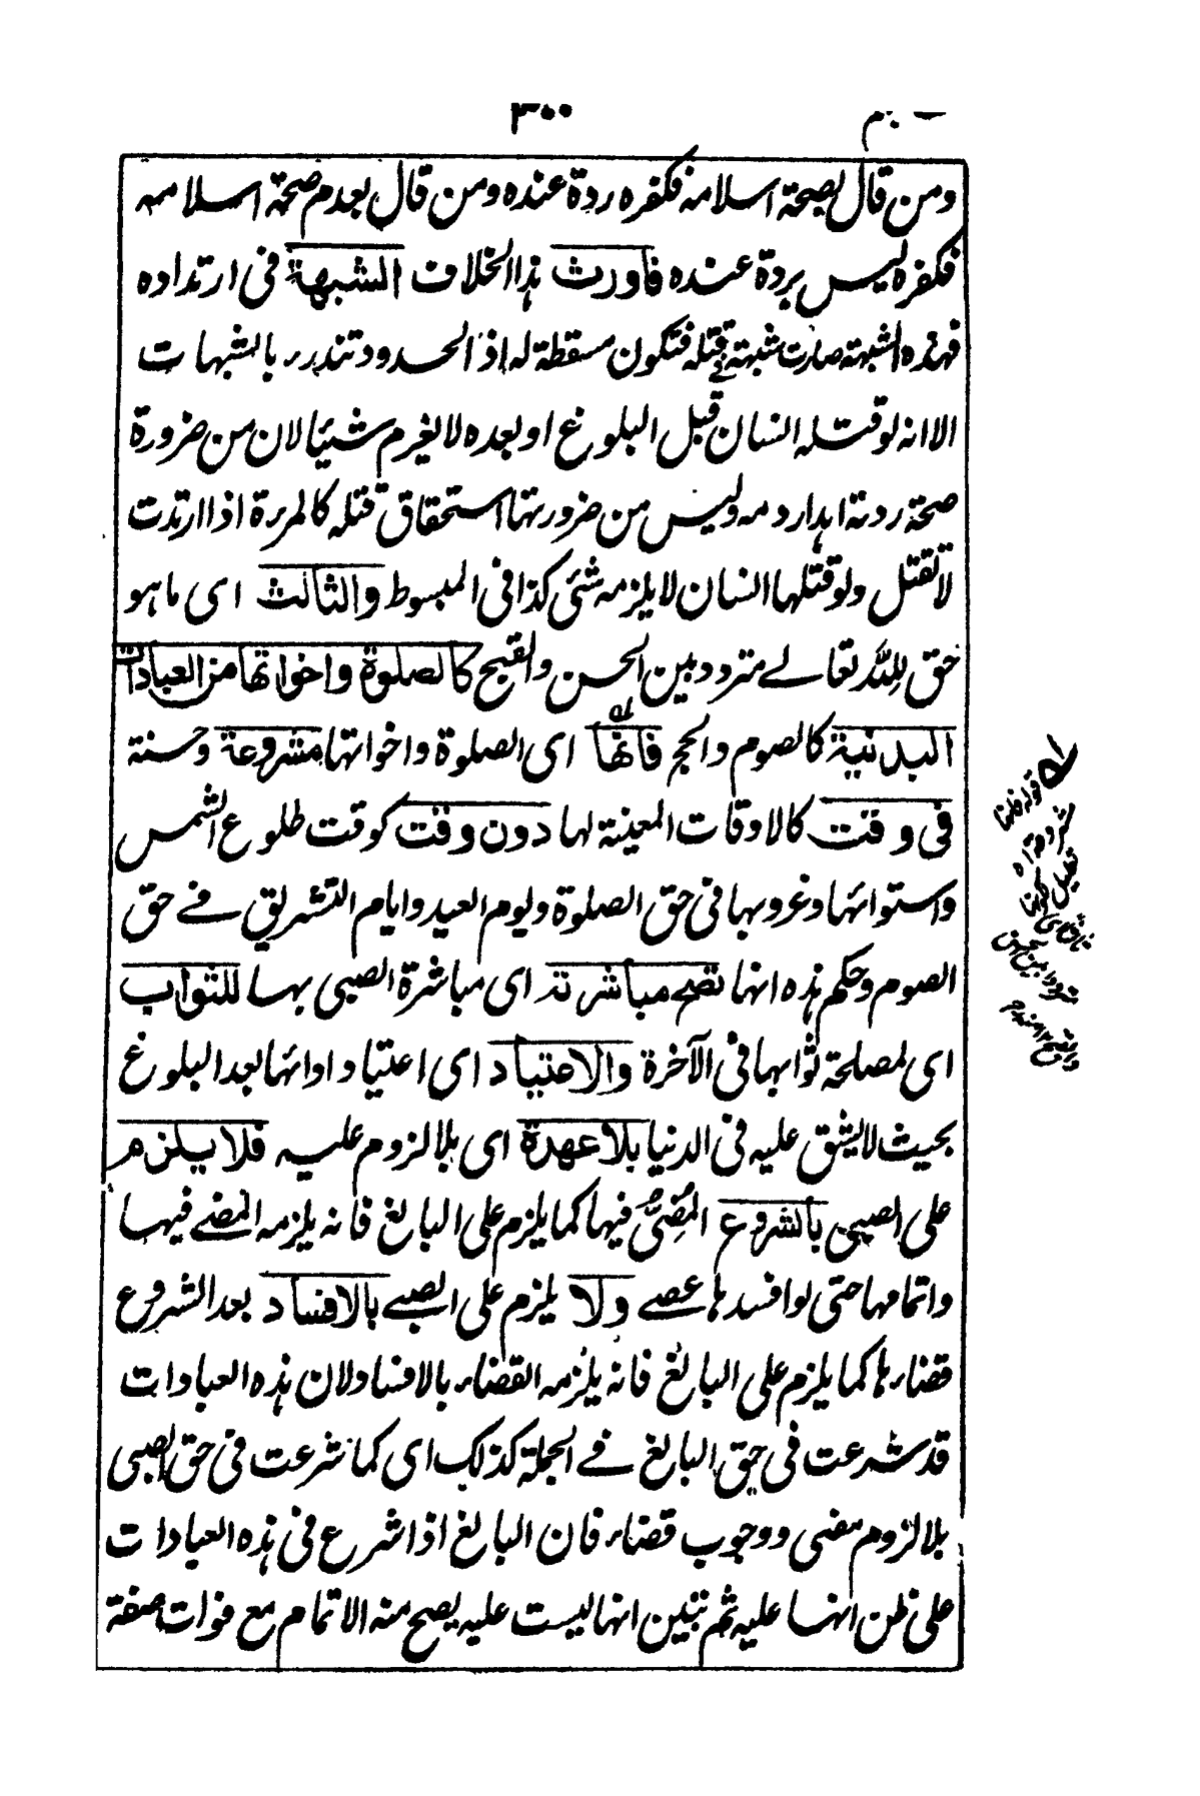 ٣٠٠
ومن قال بصحة اسلامه فكفره ردة عنده ومن قال بعدم صحة اسلامه
فكفره ليس بردة عنده فاورث هذا الخلاف الشبهة فى ارتداده
فهذه الشبهة صارت شبهة فے قتله فتكون مسقطة له اذ الحدود تندرء بالشبهات
الا انه لو قتله انسان قبل البلوغ او بعده لا يغرم شيئا لان من ضرورة
صحة ردته اهدار دمه وليس من ضرورتها استحقاق قتله كالمرءة اذا ارتدت
لا تقتل ولو قتلها انسان لا يلزمه شئ كذا فى المبسوط والثالث اى ما هو
حق لله تعالے متردد بين الحسن والقبح كالصلوة واخواتها من العبادات
البدنية كالصوم والحج فانها اى الصلوة واخواتها مشروعة وحسنة
فى وقت كالاوقات المعينة لها دون وقت كوقت طلوع الشمس
واستوائها وغروبها فى حق الصلوة ويوم العيد وايام التشريق فے حق
الصوم وحكم هذه انها تصح مباشرته اى مباشرة الصبى بها للثواب
اى لمصلحة ثوابها فى الآخرة والاعتياد اى اعتياد ادائها بعد البلوغ
بحيث لا يشق عليه فى الدنيا بلا عهدة اى بلا لزوم عليه فلا يلزم
على الصبى بالشروع المُضِىُّ فيها كما يلزم على البالغ فانه يلزمه المضے فيها
واتمامها حتى لو افسدها عصے ولا يلزم على الصبے بالافساد بعد الشروع
قضاءها كما يلزم على البالغ فانه يلزمه القضاء بالافساد لان هذه العبادات
قد شرعت فى حق البالغ فے الجملة كذلك اى كما شرعت فى حق الصبى
بلا لزوم مضى ووجوب قضاء فان البالغ اذا شرع فى هذه العبادات
على ظن انها عليه ثم تبين انها ليست عليه يصح منه الاتمام مع فوات صفة
قوله فانها